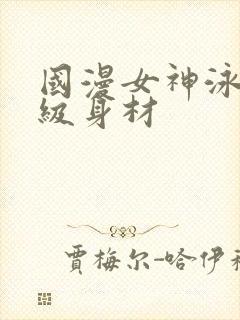 國漫女神泳
級身材
賈梅尔-哈伊